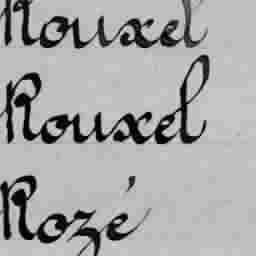 Rouxel
Rouxel
Rozé